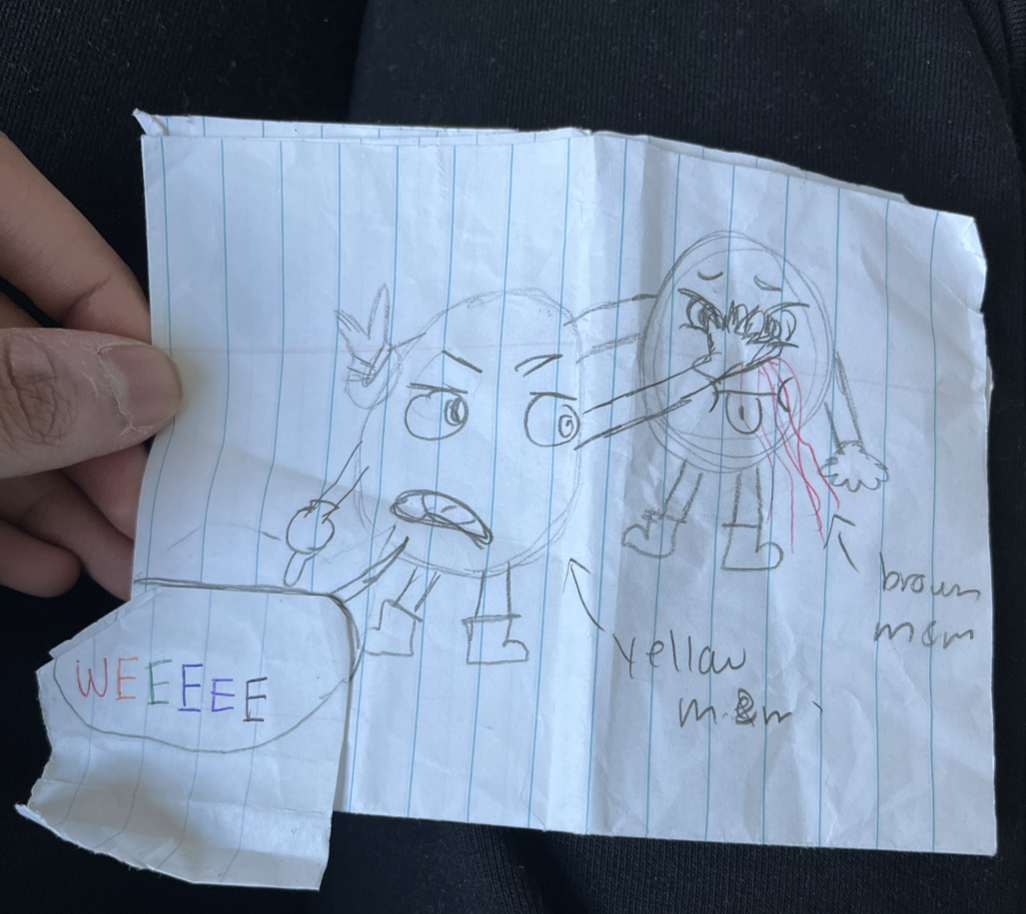 WEEEEE
yellow
m&m
brown
m&m